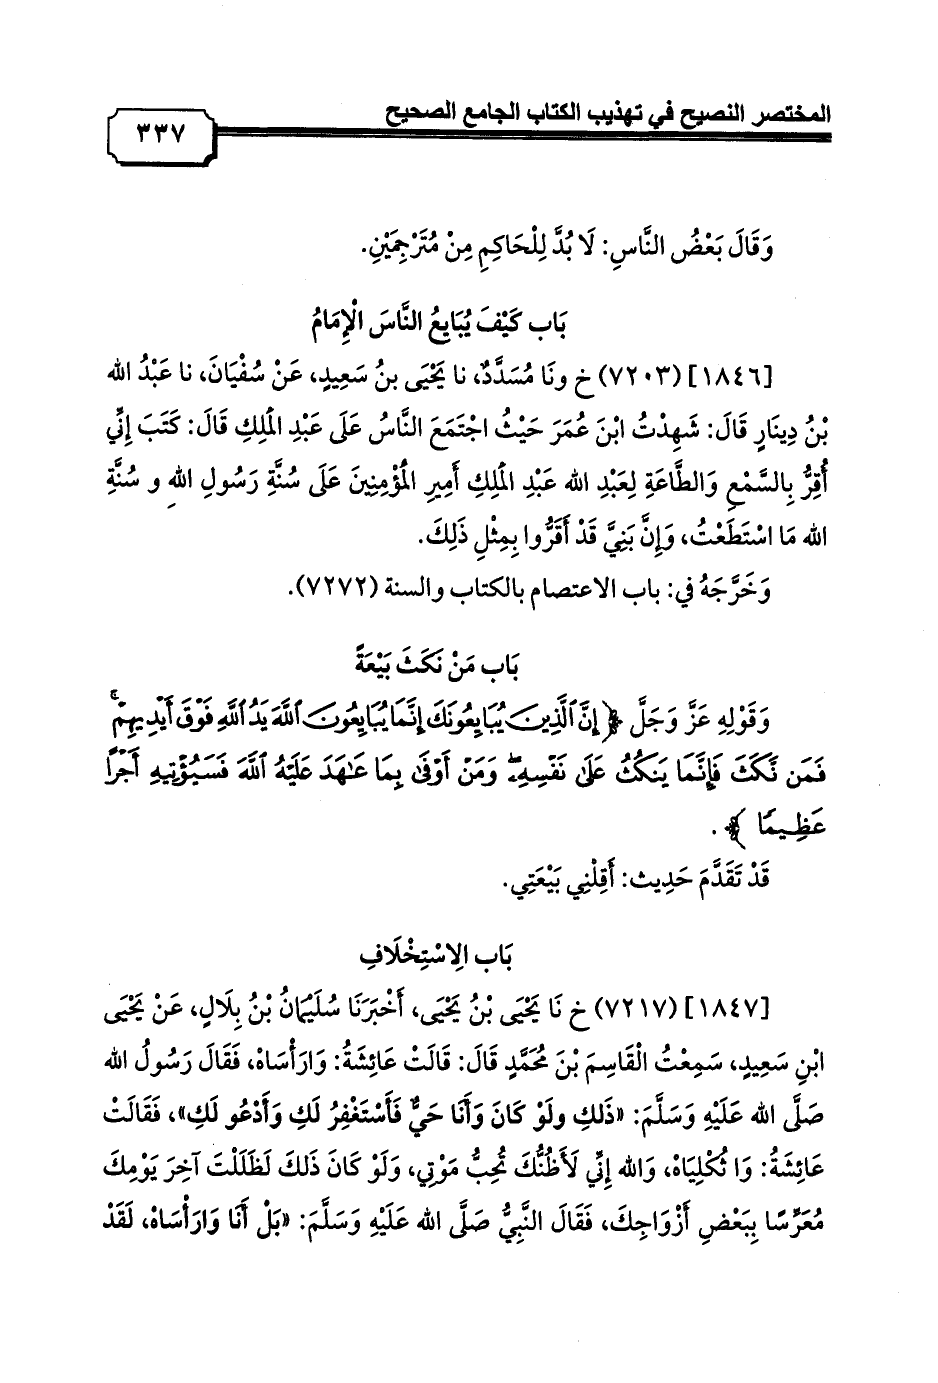 المختصر النصيح في تهذيب الكتاب الجامع الصحيح
٣٣٧
وَقَالَ بَعْضُ النَّاسِ: لَا بُدَّ لِلْحَاكِمِ مِنْ مُتَرْجِمَيْنِ.
بَاب كَيْفَ يُبَايِعُ النَّاسَ الْإِمَامُ
[١٨٤٦] (٧٢٠٣) خ ونَا مُسَدَّدٌ، نا يَحْيَى بنُ سَعِيدٍ، عَنْ سُفْيَانَ، نا عَبْدُ الله
بْنُ دِينَارٍ قَالَ: شَهِدْتُ ابْنَ عُمَرَ حَيْثُ اجْتَمَعَ النَّاسُ عَلَى عَبْدِ الْمَلِكِ قَالَ: كَتَبَ إِنِّي
أُقِرُّ بِالسَّمْعِ وَالطَّاعَةِ لِعَبْدِ الله عَبْدِ الْمَلِكِ أَمِيرِ الْمُؤْمِنِينَ عَلَى سُنَّةِ رَسُولِ اللهِ و سُنَّةِ
الله مَا اسْتَطَعْتُ، وَإِنَّ بَنِيَّ قَدْ أَقَرُّوا بِمِثْلِ ذَلِكَ.
وَخَرَّجَهُ في: باب الاعتصام بالكتاب والسنة (٧٢٧٢).
بَاب مَنْ نَكَثَ بَيْعَةً
وَقَوْلِهِ عَزَّ وَجَلَّ ﴿إِنَّ الَّذِينَ يُبَايِعُونَكَ إِنَّمَا يُبَايِعُونَ اللَّهَ يَدُ اللَّهِ فَوْقَ أَيْدِيهِمْ ۚ
فَمَن نَّكَثَ فَإِنَّمَا يَنكُثُ عَلَىٰ نَفْسِهِ ۖ وَمَنْ أَوْفَىٰ بِمَا عَاهَدَ عَلَيْهُ اللَّهَ فَسَيُؤْتِيهِ أَجْرًا
عَظِيمًا ﴾ .
قَدْ تَقَدَّمَ حَدِيث: أَقِلْنِي بَيْعَتِي.
بَاب الِاسْتِخْلَافِ
[١٨٤٧] (٧٢١٧) خ نَا يَحْيَى بْنُ يَحْيَى، أَخْبَرَنَا سُلَيْمَانُ بْنُ بِلَالٍ، عَنْ يَحْيَى
ابْنِ سَعِيدٍ، سَمِعْتُ الْقَاسِمَ بْنَ مُحَمَّدٍ قَالَ: قَالَتْ عَائِشَةُ: وَارَأْسَاهْ، فَقَالَ رَسُولُ الله
صَلَّى الله عَلَيْهِ وَسَلَّمَ: «ذَلكِ ولَوْ كَانَ وَأَنَا حَيٌّ فَأَسْتَغْفِرُ لَكِ وَأَدْعُو لَكِ»، فَقَالَتْ
عَائِشَةُ: وَا ثُكْلِيَاهْ، وَالله إِنِّي لَأَظُنُّكَ تُحِبُّ مَوْتِي، وَلَوْ كَانَ ذَلكَ لَظَلَلْتَ آخِرَ يَوْمِكَ
مُعَرِّسًا بِبَعْضِ أَزْوَاجِكَ، فَقَالَ النَّبِيُّ صَلَّى الله عَلَيْهِ وَسَلَّمَ: «بَلْ أَنَا وَارَأْسَاهْ، لَقَدْ